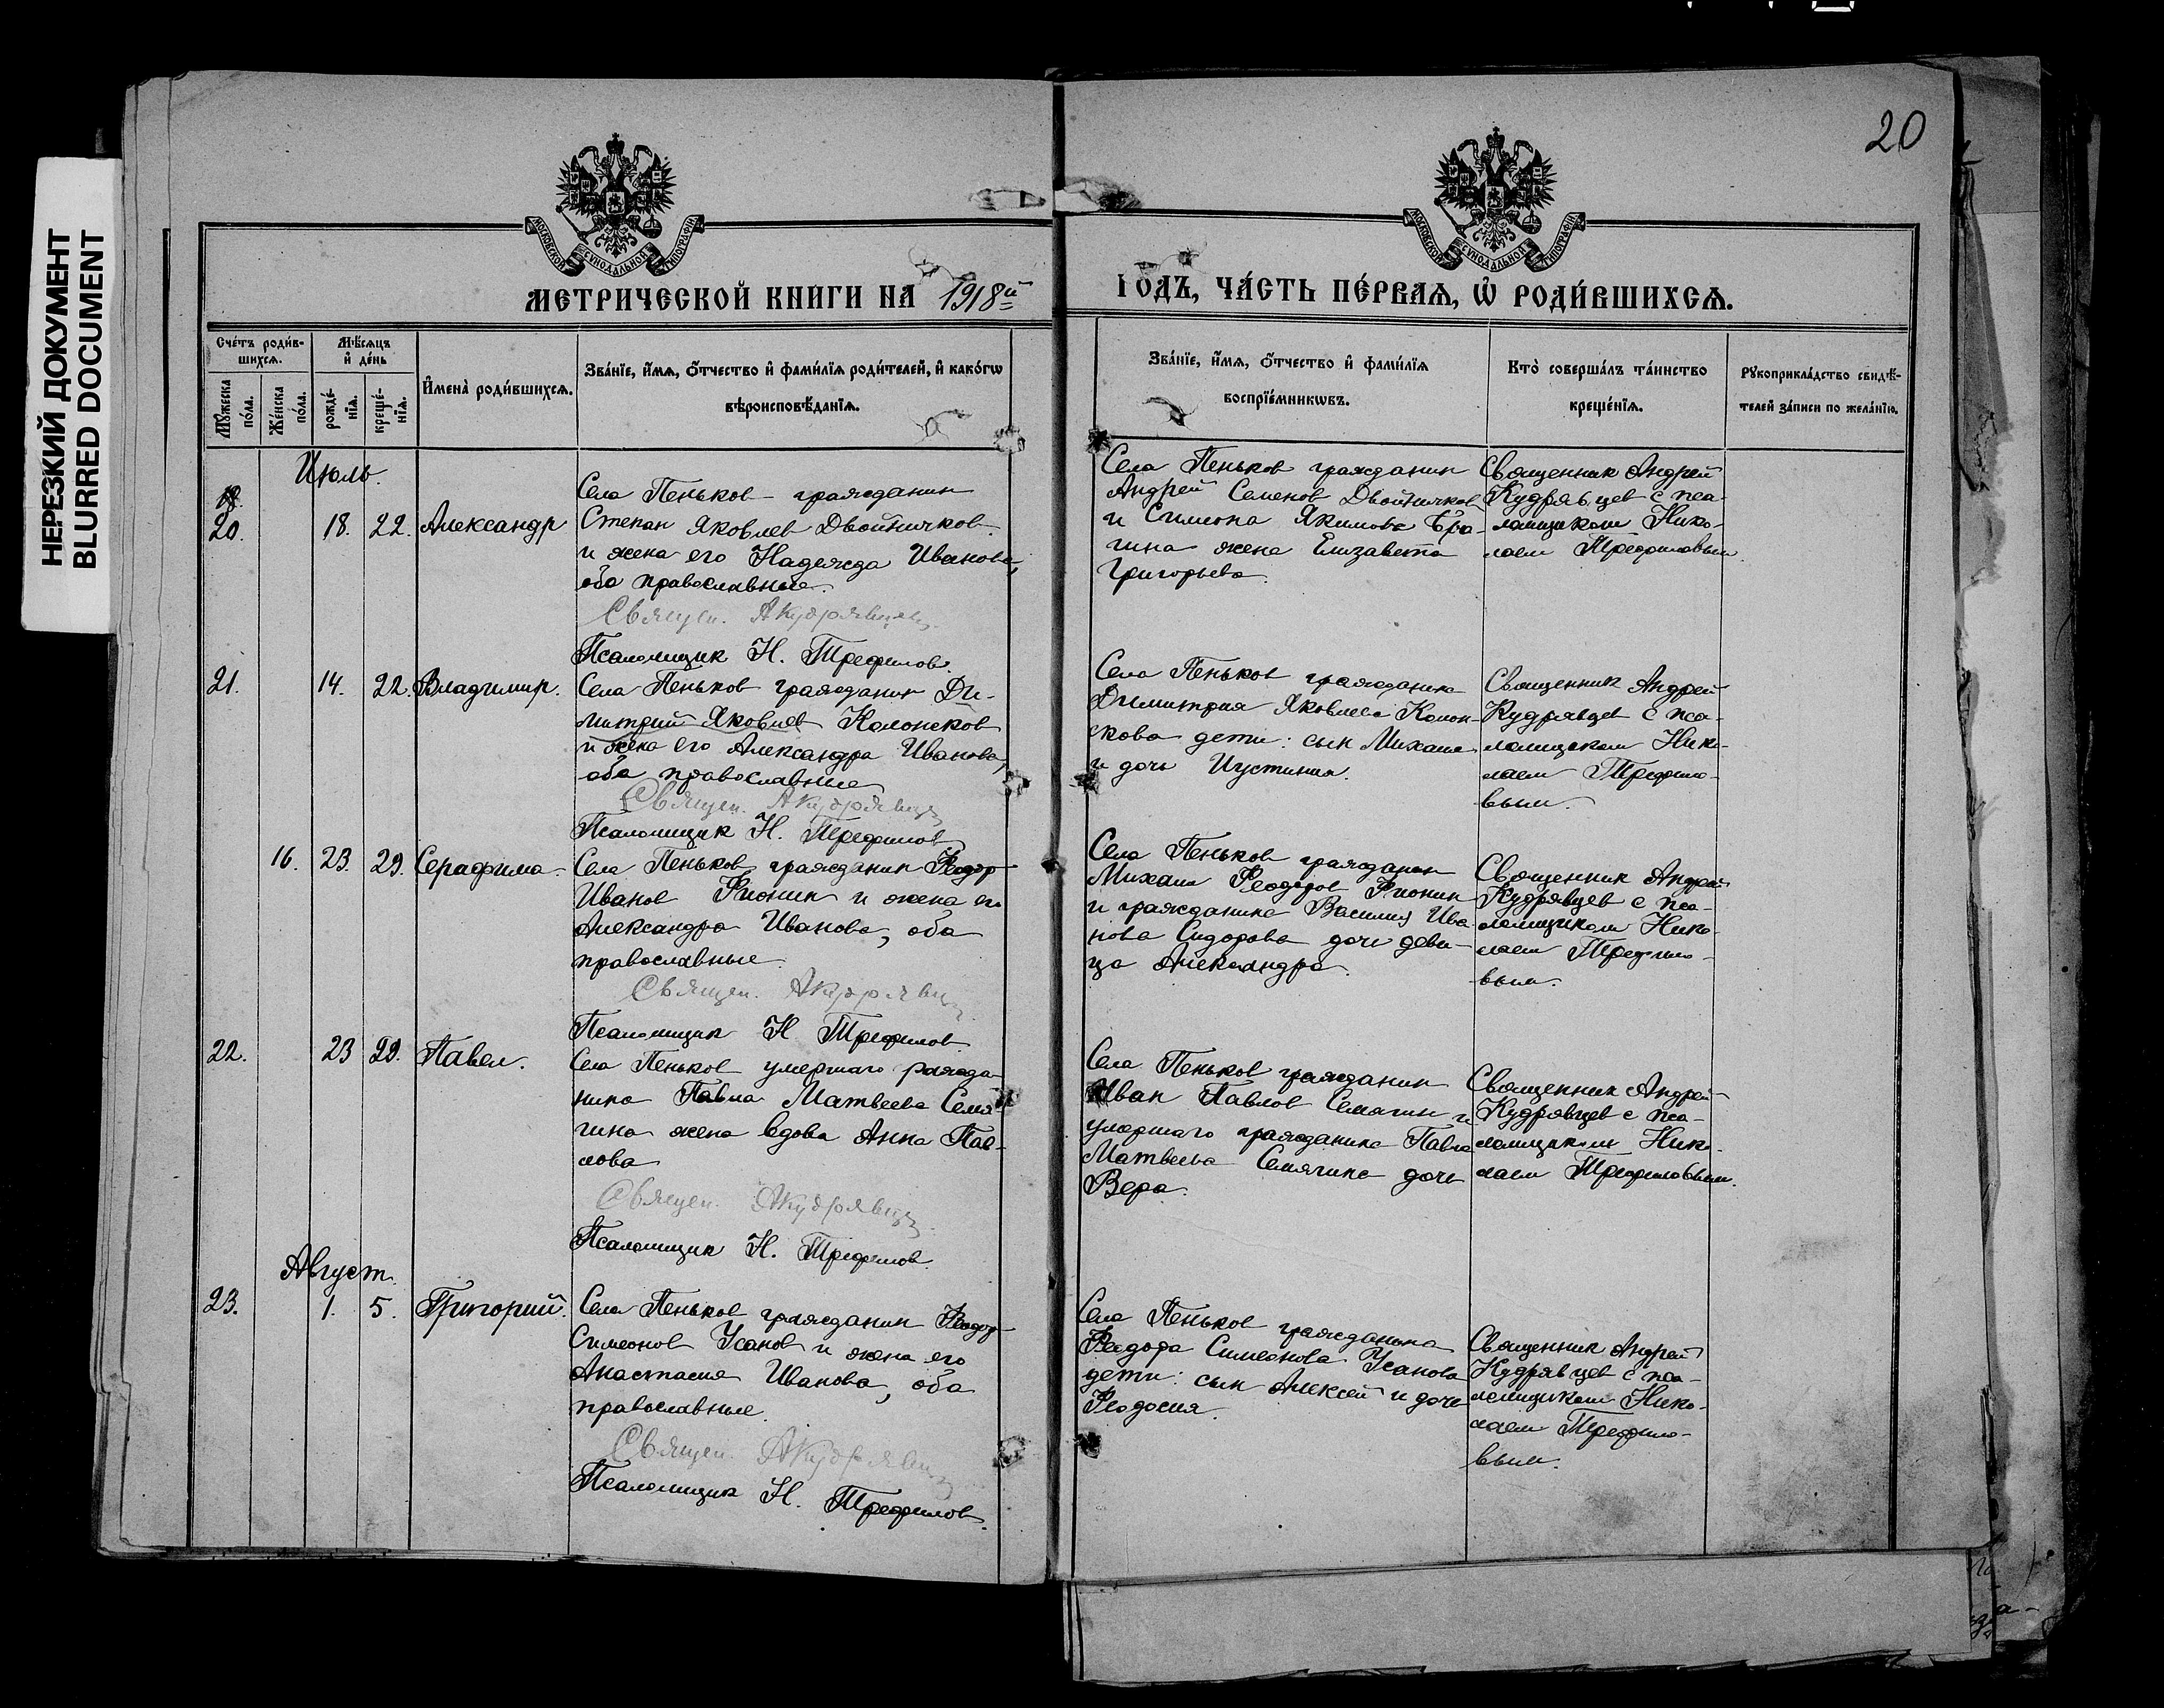 НЕРЕЗКИЙ ДОКУМЕНТ
BLURRED DOCUMENT
20
МОСКОВСКОЙ СѴНОДАЛЬНОЙ ТИПОГРАФІИ
МОСКОВСКОЙ СѴНОДАЛЬНОЙ ТИПОГРАФІИ
МЕТРИЧЕСКОЙ КНИГИ НА 1918й
ГОДЪ, ЧА́СТЬ ПЕ́РВАѦ, Ѡ҆ РОДИ́ВШИХСѦ.
Сче́тъ роди́в-
шихсѧ.
Мѹ́жеска по́ла.
Же́нска по́ла.
Мѣ́сѧцъ
и҆ де́нь
рожде́-
нїѧ.
креще́-
нїѧ.
И҆мена̀ роди́вшихсѧ.
Зва́нїе, и҆́мѧ, ѻ҆́тчество и҆ фами́лїѧ роди́телей, и҆ како́гѡ
вѣроисповѣ́данїѧ.
Зва́нїе, и҆́мѧ, ѻ҆́тчество и҆ фами́лїѧ
воспрїе́мникѡвъ.
Кто̀ соверша́лъ та́инство
креще́нїѧ.
Рѹкоприкла́дство свидѣ́-
телей за́писи по жела́нїю.
Июль.
20. 18. 22. Александр
Села Пеньков гражданин
Степан Яковлев Двойничков
и жена его Надежда Иванова,
оба православные.
Священ. АКудрявцев
Псаломщик Н. Трефилов.
Села Пеньков гражданин
Андрей Семенов Двойничков
и Симеона Якимова Бра-
гина жена Елизавета
Григорьева.
Священник Андрей
Кудрявцев с пса-
ломщиком Нико-
лаем Трефиловым.
21. 14. 22. Владимир.
Села Пеньков гражданин Ди-
митрий Яковлев Колонсков
и жена его Александра Иванова,
оба православные
Священ. АКудрявцев
Псаломщик Н. Трефилов
Села Пеньков гражданина
Димитрия Яковлева Колон-
скова дети: сын Михаил
и дочь Иустиния.
Священник Андрей
Кудрявцев с пса-
ломщиком Нико-
лаем Трефило-
вым.
16. 23. 29. Серафима.
Села Пеньков гражданин Феодор
Иванов Фионин и жена его
Александра Иванова, оба
православные.
Священ. АКудрявцев
Псаломщик Н Трефилов.
Села Пеньков гражданин
Михаил Феодоров Фионин
и гражданина Василия Ива
нова Сидорова дочь деви-
ца Александра.
Священник Андрей
Кудрявцев с пса-
ломщиком Нико-
лаем Трефило-
вым.
22. 23 29. Павел.
Села Пеньков умершаго гражда
нина Павла Матвеева Семя
гина жена вдова Анна Пав-
лова
Священ. АКудрявцев
Псаломщик Н. Трефилов.
Села Пеньков гражданин
Иван Павлов Семягин и
умершаго гражданина Павла
Матвеева Семягина дочь
Вера.
Священник Андрей
Кудрявцев с пса-
ломщиком Нико-
лаем Трефиловым.
Август.
23. 1. 5. Григорий.
Села Пеньков гражданин Феодор
Симеонов Усанов и жена его
Анастасия Иванова, оба
православные.
Священ. АКудрявцев
Псаломщик Н. Трефилов.
Села Пеньков гражданина
Феодора Симеонова Усанова
дети: сын Алексей и дочь
Феодосия.
Священник Андрей
Кудрявцев с пса-
ломщиком Нико-
лаем Трефило-
вым.